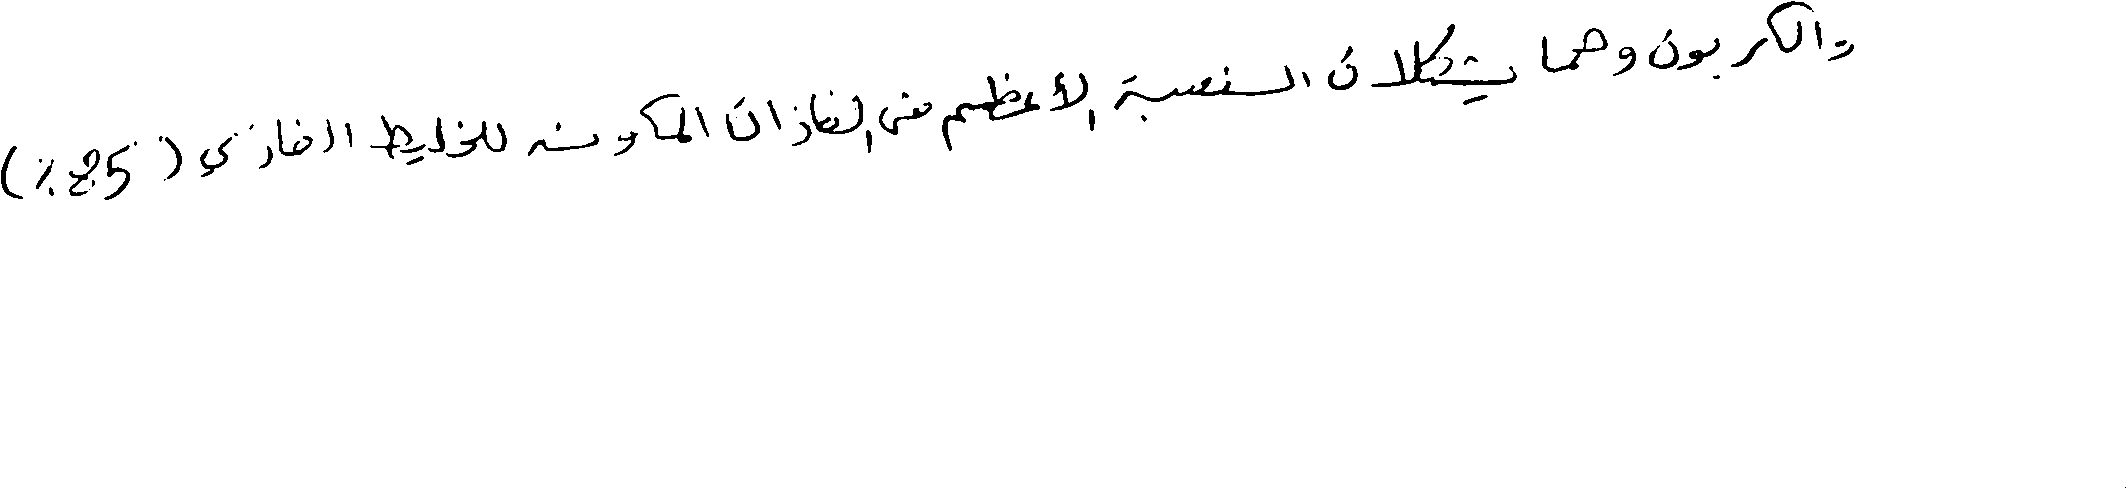 والكربون وهما يشكلان النسبة الأعظم من الغازات المكونة للخليط الغازي (85٪)